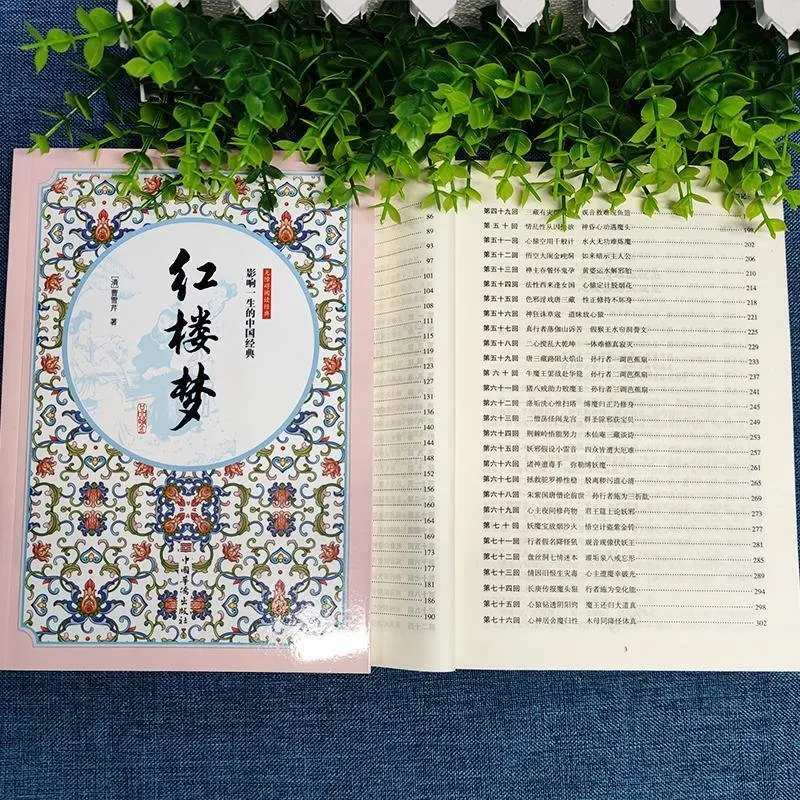 红楼梦
[清]曹雪芹 著
无障碍阅读经典
影响一生的中国经典
中国华侨出版社
86
91
93
97
101
104
108
111
123
127
131
137
152
156
160
164
169
173
177
182
186
190
第五十回 情乱性从因爱欲 神昏心动遇魔头 198
第五十一回 心猿空用千般计 水火无功难炼魔 202
第五十二回 悟空大闹金㘬洞 如来暗示主人公 206
第五十三回 禅主吞餐怀鬼孕 黄婆运水解邪胎 210
第五十四回 法性西来逢女国 心猿定计脱烟花 214
第五十五回 色邪淫戏唐三藏 性正修持不坏身 218
第五十六回 神狂诛草寇 道昧放心猿 221
第五十七回 真行者落伽山诉苦 假猴王水帘洞誊文 225
第五十八回 二心搅乱大乾坤 一体难修真寂灭 229
第五十九回 唐三藏路阻火焰山 孙行者一调芭蕉扇
第六十回 牛魔王罢战赴华筵 孙行者二调芭蕉扇
第六十一回 猪八戒助力败魔王 孙行者三调芭蕉扇
第六十二回 涤垢洗心惟扫塔 缚魔归正乃修身 245
第六十三回 二僧荡怪闹龙宫 群圣除邪获宝贝 249
第六十四回 荆棘岭悟能努力 木仙庵三藏谈诗 253
第六十五回 妖邪假设小雷音 四众皆遭大厄难 257
第六十六回 诸神遭毒手 弥勒缚妖魔 261
第六十七回 拯救驼罗禅性稳 脱离秽污道心清 265
第六十八回 朱紫国唐僧论前世 孙行者施为三折肱
第六十九回 心主夜间修药物 君王筵上论妖邪
第七十回 妖魔宝放烟沙火 悟空计盗紫金铃
第七十一回 行者假名降怪犼 观音现像伏妖王
第七十二回 盘丝洞七情迷本 濯垢泉八戒忘形 285
第七十三回 情因旧恨生灾毒 心主遭魔幸破光
第七十四回 长庚传报魔头狠 行者施为变化能
第七十五回 心猿钻透阴阳窍 魔王还归大道真 298
第七十六回 心神居舍魔归性 木母同降怪体真 302
3